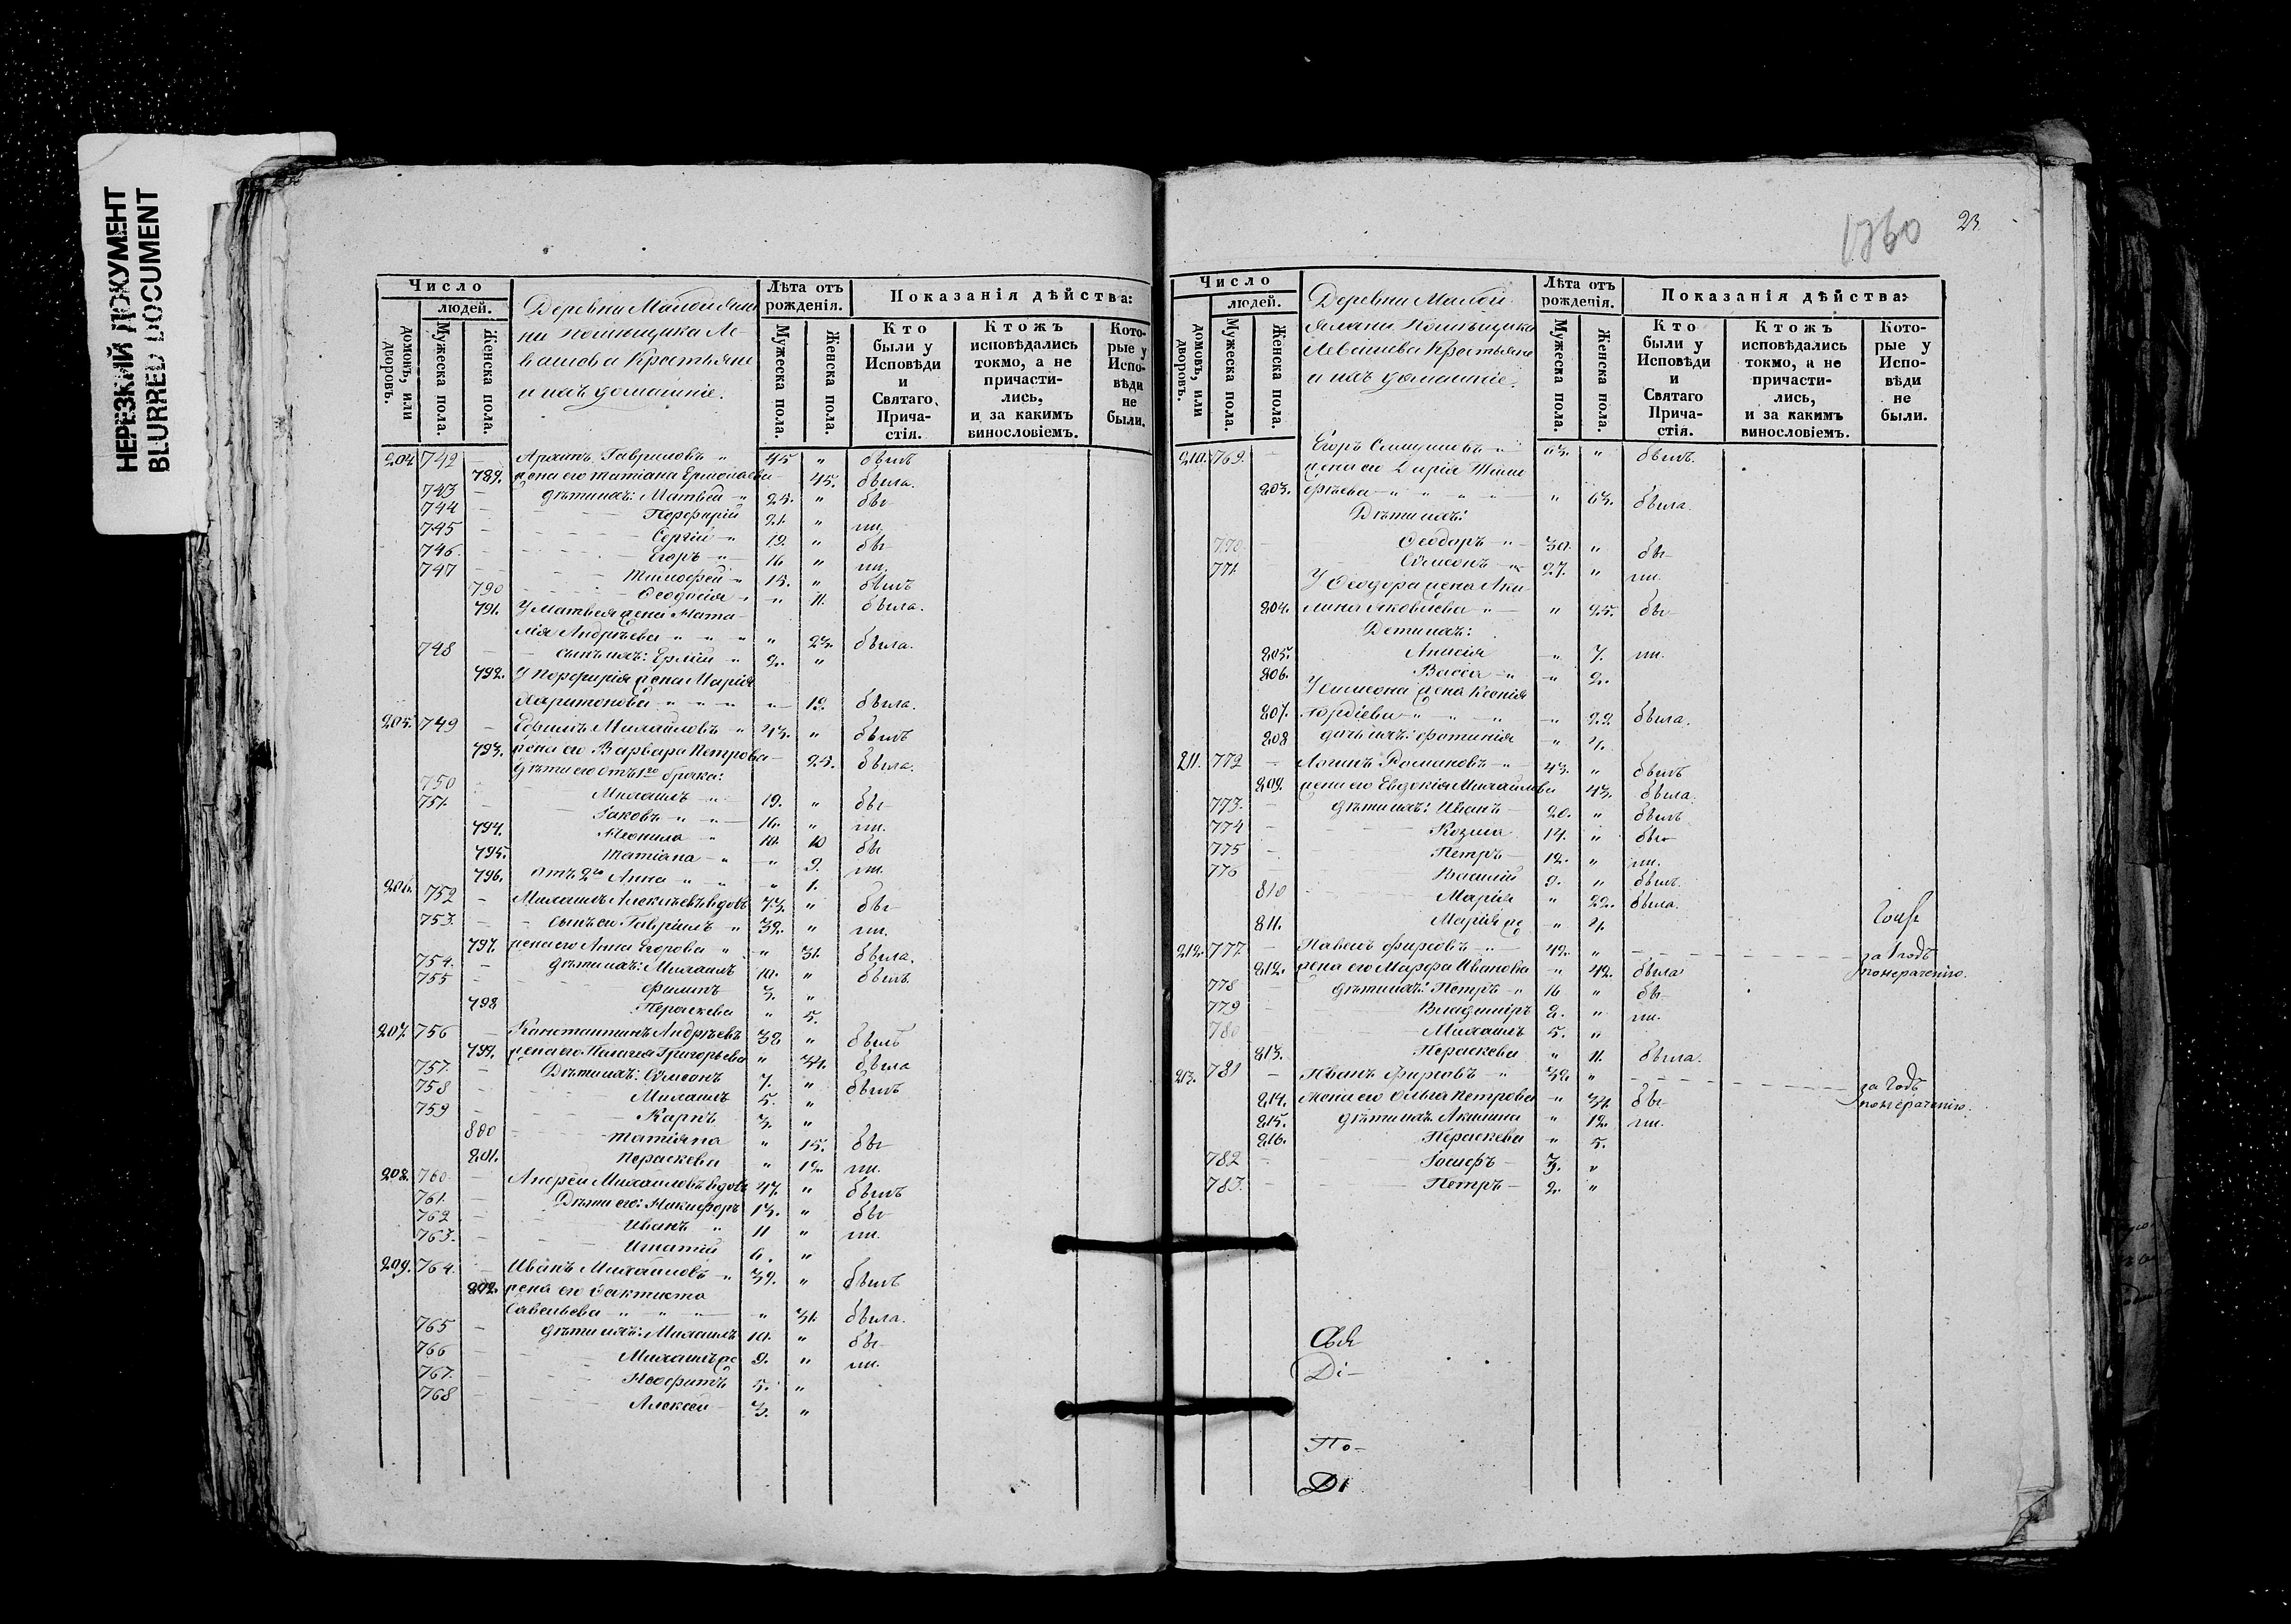 НЕРЕЗКИЙ ДОКУМЕНТ
BLURRED DOCUMENT
Число
людей.
домовъ, или дворовъ.
Мужеска пола.
Женска пола.
Деревни Малой Ялма-
ни помѣщика Ле-
вашова Крестьяне
и ихъ домашніе.
Лѣта отъ рожденія.
Мужеска пола.
Женска пола.
Показанія дѣйства:
Кто были у Исповѣди и Святаго Прича-стія.
Ктожъ исповѣдались токмо, а не причасти-лись, и за какимъ винословіемъ.
Кото-рые у Испо-вѣди не были.
204 742 — Архипъ Гавриловъ " 45 " былъ
789. жена его Татіана Ермолаева 45. была.
743 — дѣти ихъ: Матвей " 24. " бы
744 — Порфирій 21. " ли.
745 — Сергій " 19. " бы
746. — Егоръ " 16 " ли.
747 — Тимофей " 13. " былъ
790 Ѳеодосія " " 11. была.
791. У Матвея жена Ната-
лія Андрѣева " " " " 23. была.
748 — сынъ ихъ: Ермій " 2. "
792. У Порфирія жена Марія
Харитонова " " " " 19. была.
205. 749 — Ефимъ Михайловъ " 43. " былъ
793. жена его Варвара Петрова 24. была.
дѣти его отъ 1го брака:
750 Михаилъ " 19. " бы
751. — Іаковъ " " 16. " ли.
794. Неонила " 10. 10 бы
795. Татіана " " 9. ли.
796. отъ 2го Анна " " " 1.
206. 752 — Михаилъ Алексѣевъ вдовъ 73. " бы
753. — сынъ его Гавріилъ " 32. " ли.
797. жена его Анна Егорова " " 31. была.
754. — дѣти ихъ: Михаилъ 10. " былъ.
755 — Филипъ 3. "
798 Пераскева " 5.
207. 756 — Константинъ Андрѣевъ 38 " былъ
799. жена его Пелагея Григорьева " 34. была
757. — Дѣти ихъ: Сѵмеонъ 7. " былъ
758 — Михаилъ 5. "
759 — Карпъ 3. "
800 Татіяна " 15. бы
801. Пераскева " 12. ли.
208. 760 — Андрей Михайловъ вдовъ 47. " былъ
761. — Дѣти его: Никифоръ 13. " бы
762 — Иванъ " 11 " ли.
763. — Игнатій 6. "
209. 764. — Иванъ Михайловъ " 32. " былъ
802. жена его Ѳактиста
Савельева " " " " 31. была.
765 — дѣти ихъ: Михаилъ 10. " бы
766 — Михаилъ же 9. " ли.
767. — Неофитъ 5. "
768 — Алексей 3. "
1760
23
Число
людей.
домовъ, или дворовъ.
Мужеска пола.
Женска пола.
Деревни Малой
Ялмани Помѣщика
Левашева Крестьяне
и ихъ домашніе.
Лѣта отъ рожденія.
Мужеска пола.
Женска пола.
Показанія дѣйства:
Кто были у Исповѣди и Святаго Прича-стія.
Ктожъ исповѣдались токмо, а не причасти-лись, и за какимъ винословіемъ.
Кото-рые у Испо-вѣди не были.
210. 769. — Егоръ " 63. " былъ.
жена его Дарія Тимо-
803. фѣева " " " " " 63. была.
Дѣти ихъ:
770. — Ѳеодоръ " 30. " бы
771. Сѵмеонъ " 27. " ли.
У Ѳеодора жена Аку-
804. лина Яковлева " " 25. бы
Дети ихъ:
805. Анисія " 7. ли.
806. Васса " " 2.
У Симеона жена Ксенія
807. Гордіева " " " " 22. была.
808 дочь ихъ: Фотинія " 4.
211. 772 — Логинъ Романовъ " 43. " былъ
809. жена его Евдокія Михайлова 43. была.
773. — дѣти ихъ: Иванъ 20. " былъ
774 — Козма 14. " бы
775 — Петръ 12. " ли.
776 Василій 9. " былъ.
810 Марія " 22. была.
811. Марія же " 4.
212. 777. — Павелъ Фирсовъ " 42. " за 1 годъ
понераченію.
812. жена его Марфа Иванова " 42. была
778 дѣти ихъ: Петръ " 16 " бы
779 Владиміръ 8. " ли.
780 Михаилъ 5. "
813. Пераскева " 11. была.
213. 781 — Иванъ Фирсовъ " 32. " за годъ
понераченію.
814. жена его Ольга Петрова " 34. бы
815. дѣти ихъ Акилина " 12. ли.
816. Пераскева " 5.
782 Іосифъ 3. "
783. Петръ 2. "
Свя
Ді-
По-
Ді